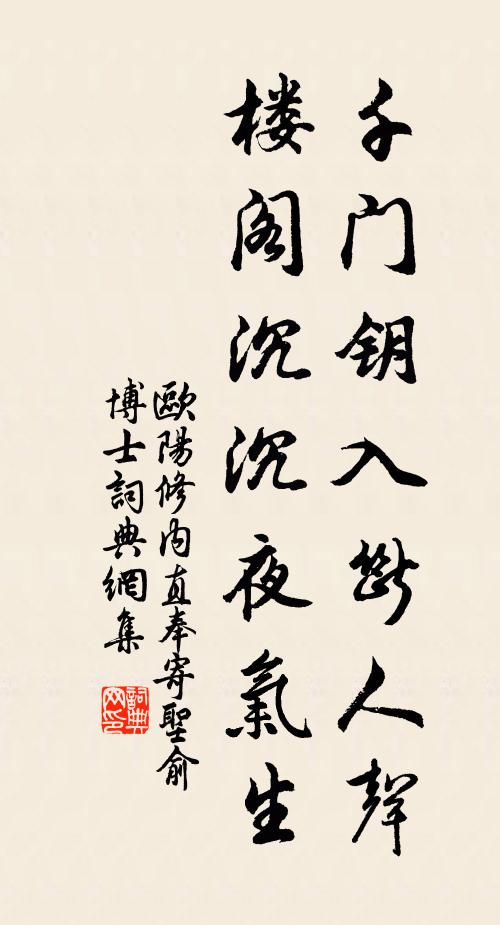 千门钥入断人聲
楼阁沉沉夜氣生
歐陽修内直奉寄聖俞
博士詞典網集
詞典网印